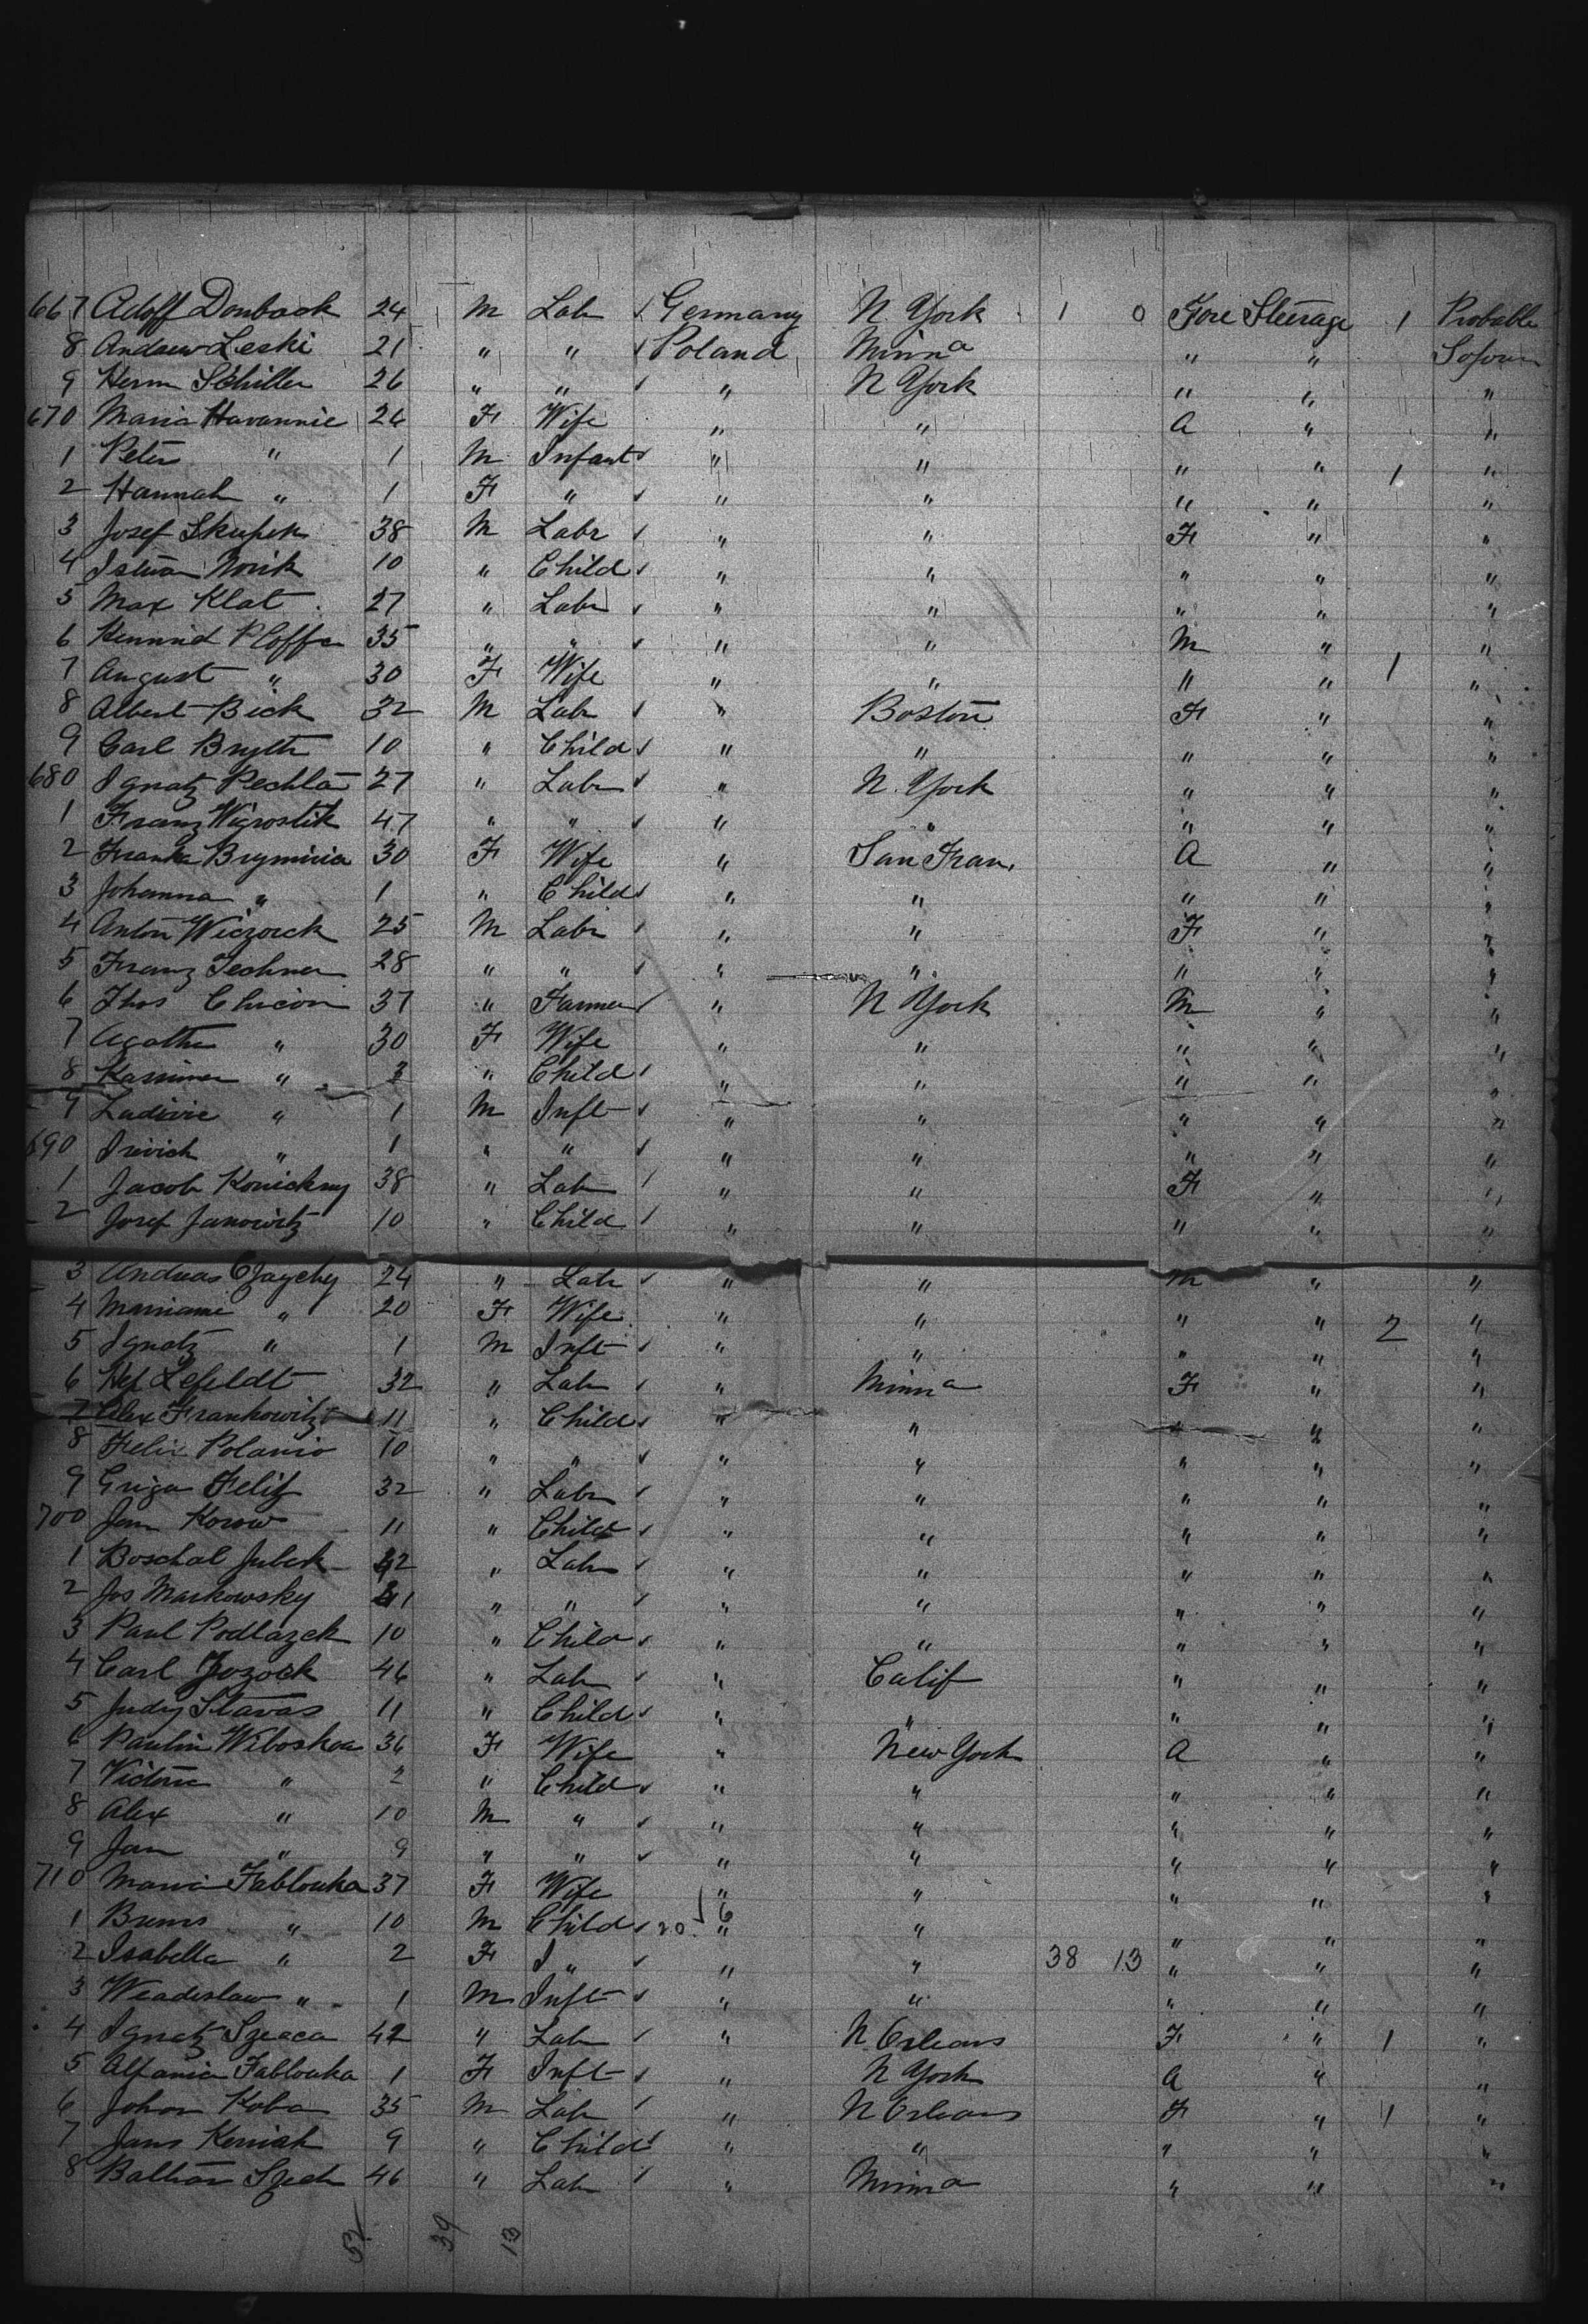 667 Adolf Donback 24 M Lab ✓ Germany N York 1 0 Fore Steerage 1 Probable
8 Andrew Leski 21 " " ✓ Poland Minna " " Sojourn
9 Herm Schiller 26 " " ✓ " N York " " "
670 Maria Havannie 26 F Wife " " A " "
1 Peter " 1 M Infant ✓ " " " " 1 "
2 Hannah " 1 F " ✓ " " " " "
3 Josef Skupek 38 M Labr ✓ " " F " "
4 Istvan Novik 10 " Child ✓ " " " " "
5 Max Klat 27 " Labr ✓ " " " " "
6 Ploffer 35 " " ✓ " " M " "
7 August " 30 F Wife " " " " 1 "
8 Albert Bick 32 M Lab ✓ " Boston F " "
9 Carl Bryltr 10 " Child ✓ " " " " "
680 Ignatz Pechla 27 " Labr ✓ " N. York " " "
1 Franz Wigrostik 47 " " ✓ " " " " "
2 Franka Brymiria 30 F Wife " San Fran. A " "
3 Johanna " 1 " Child ✓ " " " " "
4 Anton Wiczorek 25 M Labr ✓ " " F " "
5 Franz Techner 28 " " ✓ " " " " "
6 Thos Chicon 37 " Farmer ✓ " N York M " "
7 Agatha " 30 F Wife " " " " "
8 " 3 " Child ✓ " " " " "
9 Ludivic " 1 M Inft ✓ " " " " "
690 " 1 " " ✓ " " " " "
1 Jacob Konickny 38 " Lab ✓ " " F " "
2 Josef Janowitz 10 " Child ✓ " " " " "
3 Andreas Czaychy 24 " Lab ✓ " " M " "
4 Mariane " 20 F Wife " " " " 2 "
5 Ignatz " 1 M Inft ✓ " " " " "
6 Hef Lefeldt 32 " Lab ✓ " Minna F " "
7 Alex Frankowitz 11 " Child ✓ " " " " "
8 Felix Polanio 10 " " ✓ " " " " "
9 Griga Felitz 32 " Labr ✓ " " " " "
700 Jan Korow 11 " Child ✓ " " " " "
1 Boschal Jubek 42 " Lab ✓ " " " " "
2 Jos Markowsky 41 " " ✓ " " " " "
3 Paul Podlazek 10 " Child ✓ " " " " "
4 Carl Jozock 46 " Lab ✓ " Calif " " "
5 Judy Slavas 11 " Child ✓ " " " " "
6 Paulin Wiboskoa 36 F Wife " New York A " "
7 Victoria " 2 " Child ✓ " " " " "
8 Alex " 10 M " ✓ " " " " "
9 Jan " 9 " " ✓ " " " " "
710 Maria Fablouka 37 F Wife " " " " "
1 Bruns " 10 M Child ✓ 20 ✓ 6 " " " " "
2 Isabella " 2 F " ✓ " " 38 13 " " "
3 Wladislaw " 1 M Inft ✓ " " " " "
4 Ignatz Szeaca 42 " Lab ✓ " N Orleans F " 1 "
5 Alfania Fablouka 1 F Inft ✓ " N York A " "
6 Johan Koba 35 M Lab ✓ " N Orleans F " 1 "
7 Jans Kerniak 9 " Child ✓ " " " " "
8 Balthar Szech 46 " Lab ✓ " Minna " " "
52 39 13